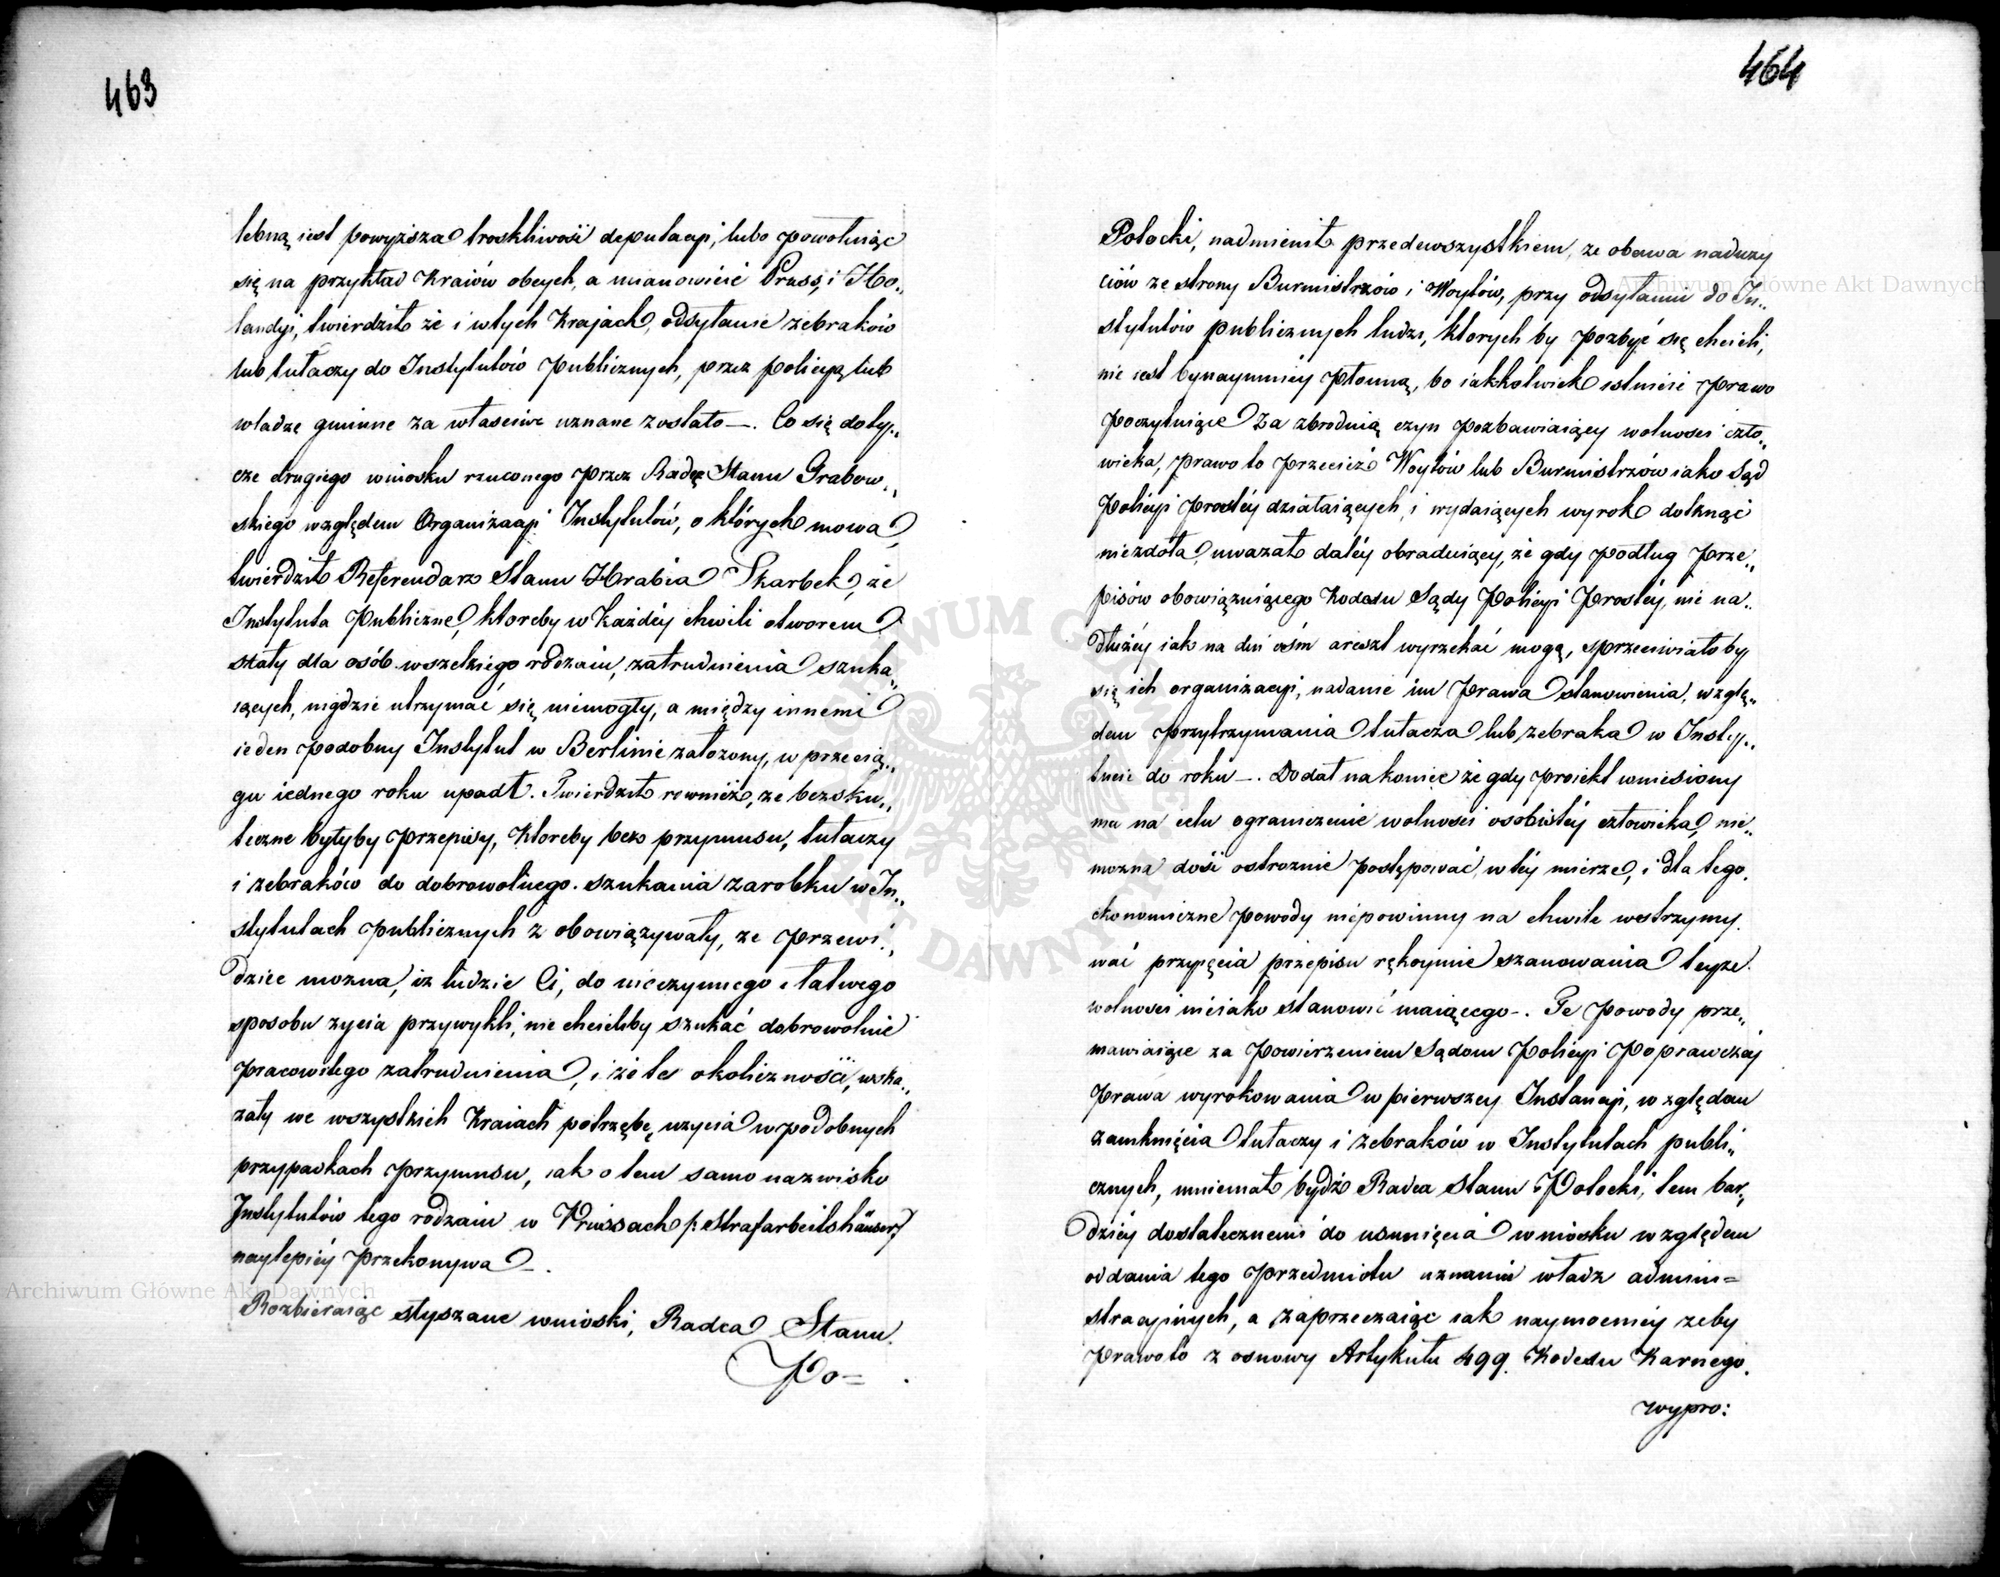 463
lebną iest powyższa troskliwość deputacyi, lubo powołuiąc
się na przykład Kraiów obcych, a mianowicie Pruss, i Ho„
landyi, twierdził że i w tych Krajach, odsyłanie żebraków
lub tułaczy do Instytutów publicznych, przez policyą lub
władzę gminne za właściwe uznane zostało —. Co się doty„
cze drugiego wniosku rzuconego przez Radcę Stanu Grabow„
skiego względem Organizacyi Instytutów, o których mowa,
twierdził Referendarz Stanu Hrabia Skarbek, że
Instytuta Publiczne, któreby w Każdéy chwili otworem
stały dla osób wszelkiego rodzaiu, zatrudnienia szuka„
iących, nigdzie utrzymać się niemogły, a między innemi
ieden podobny Instytut w Berlinie założony, w przecią„
gu iednego roku upadł. Twierdził rownież, że bezsku„
teczne byłyby przepisy, któreby bez przymusu, tułaczy
i żebraków do dobrowolnego szukania zarobku w In„
stytutach publicznych z obowiązywały, że przewi„
dziec można, iż ludzie Ci, do nieczynnego i łatwego
sposobu życia przywykli, nie chcieliby szukać dobrowolnie
pracowitego zatrudnienia, i że te okoliczności, wska„
zały we wszystkich Kraiach potrzebę użycia w podobnych
przypadkach przymusu, iak o tem samo nazwisko
Instytutów tego rodzaiu w Prussach /: Strafarbeitshäuser :/
naylepiéy przekonywa —.
Rozbieraiąc słyszane wnioski, Radca Stanu
Po=
464
Potocki, nadmienił przedewszystkiem, że obawa naduży
ciów ze strony Burmistrzów i Woytów, przy odsyłaniu do In„
stytutów publicznych ludzi, których by pozbyć się chcieli,
nie iest bynaymniéy płonną, bo iakkolwiek istnieie prawo
poczytuiące za zbrodnią czyn pozbawiaiący wolności czło„
wieka, prawo to przecież Woytów lub Burmistrzów iako Sąd
Policyi prostéy działaiących, i wydaiących wyrok dotknąć
niezdoła, uważał daléy obraduiący, że gdy podług prze„
pisów obowiązuiącego Kodexu Sądy Policyi Prostéy, nie na„
dłużéy iak na dni ośm areszt wyrzekać mogą, sprzeciwiałoby
się ich organizacyi, nadanie im Prawa stanowienia, wzglę„
dem przytrzymania tułacza lub żebraka w Insty„
tucie do roku —. Dodał nakoniec że gdy proiekt wniesiony
ma na celu ograniczenie wolności osobistéy człowieka, nie„
można dość ostrożnie postępować w téy mierze, i dla tego
ekonomiczne powody niepowinny na chwilę wstrzymy„
wać przyięcia przepisu rękoymie szanowania teyże
wolności nieiako stanowić maiącego —. Te powody prze„
mawiaiące za powierzeniem Sądom Policyi Poprawczéy
Prawa wyrokowania w pierwszey Instancyi, względem
zamknięcia tułaczy i żebraków w Instytutach publi„
cznych, mniemał bydź Radca Stanu Potocki, tem bar„
dziéy dostatecznemi do usunięcia wniosku względem
oddania tego przedmiotu uznaniu władz admini=
stracyinych, a zaprzeczaiąc iak naymocniéy żeby
prawo to z osnowy Artykułu 499. Kodexu Karnego
wypro:
Archiwum Główne Akt Dawnych
Archiwum Główne Akt Dawnych
ARCHIWUM GŁÓWNE AKT DAWNYCH